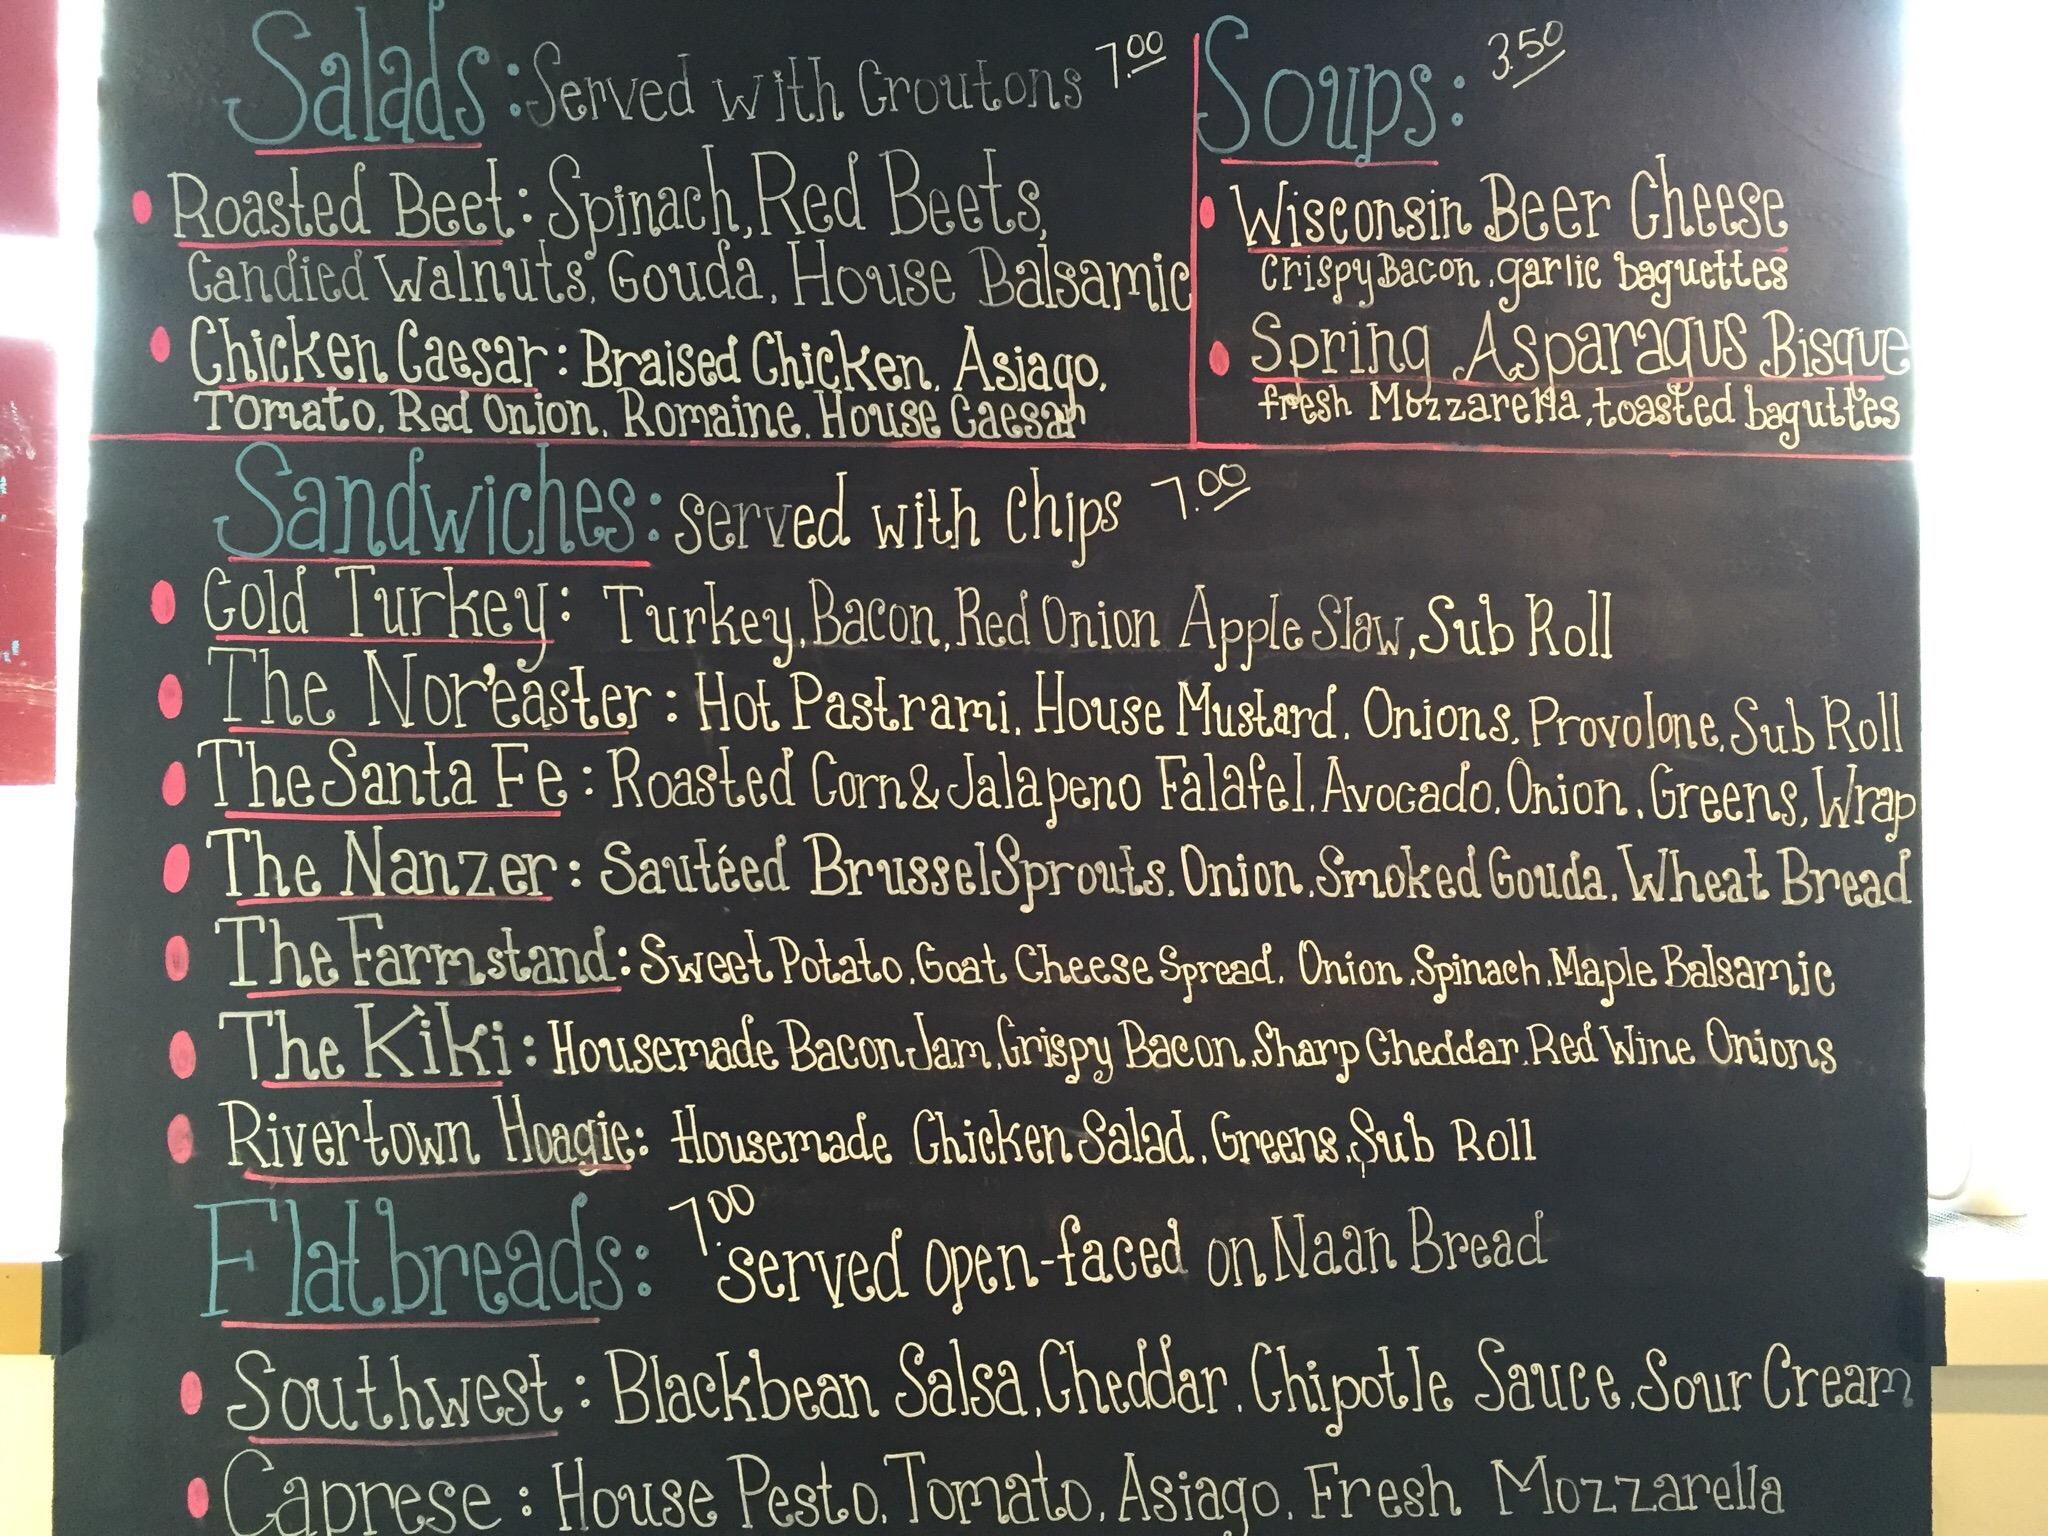 Salads: Served with Croutons 7.00
Roasted Beet: Spinach, Red Beets,
Candied Walnuts, Gouda, House Balsamic
Chicken Caesar: Braised Chicken, Asiago,
Tomato, Red Onion, Romaine, House Caesar
Soups: 3.50
Wisconsin Beer Cheese
Crispy Bacon, garlic baguettes
Spring Asparagus Bisque
fresh Mozzarella, toasted baguttes
Sandwiches: served with chips 7.00
Cold Turkey: Turkey, Bacon, Red Onion Apple Slaw, Sub Roll
The Nor'easter: Hot Pastrami, House Mustard, Onions, Provolone, Sub Roll
The Santa Fe: Roasted Corn & Jalapeno Falafel, Avocado, Onion, Greens, Wrap
The Nanzer: Sautéed Brussel Sprouts, Onion, Smoked Gouda, Wheat Bread
The Farmstand: Sweet Potato, Goat Cheese Spread, Onion, Spinach, Maple Balsamic
The Kiki: Housemade Bacon Jam, Crispy Bacon, Sharp Cheddar, Red Wine Onions
Rivertown Hoagie: Housemade Chicken Salad, Greens, Sub Roll
Flatbreads: 7.00 served open-faced on Naan Bread
Southwest: Blackbean Salsa, Cheddar, Chipotle Sauce, Sour Cream
Caprese: House Pesto, Tomato, Asiago, Fresh Mozzarella